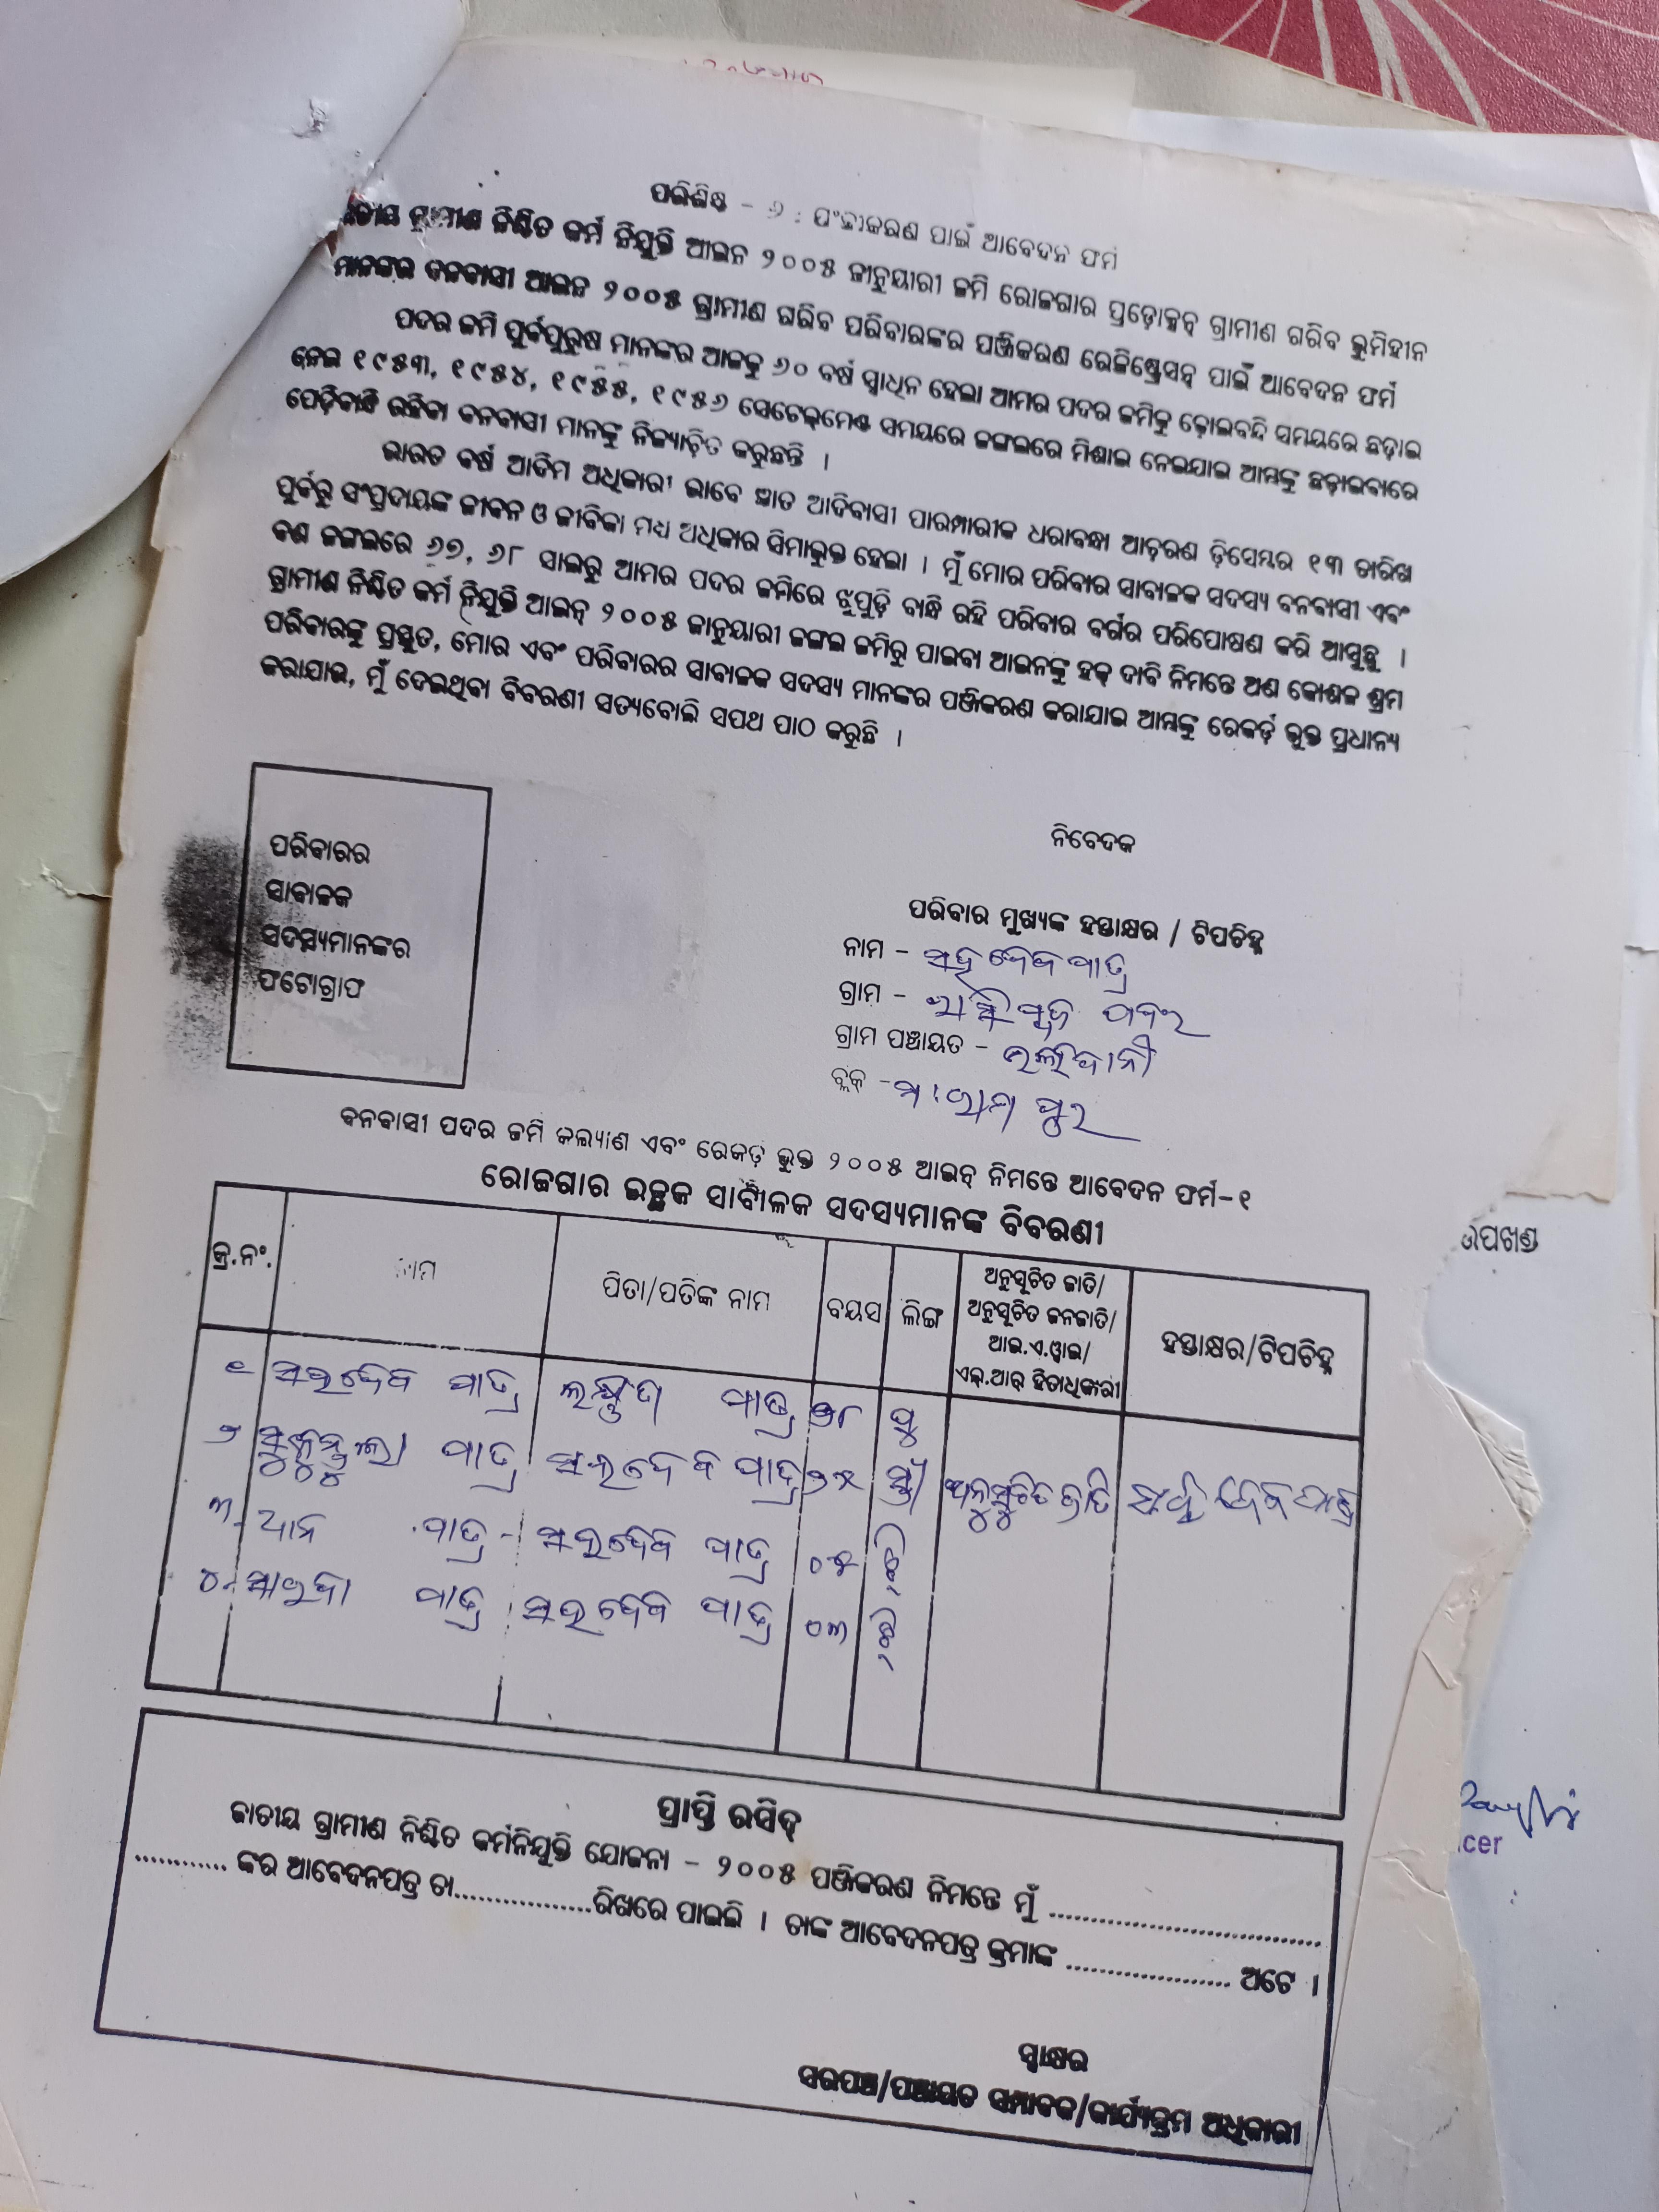 ପରିଶିଷ୍ଟ - ୬ : ପଂଜୀକରଣ ପାଇଁ ଆବେଦନ ଫର୍ମ
ଗ୍ରାମୀଣ ନିଶ୍ଚିତ କର୍ମ ନିଯୁକ୍ତି ଆଇନ ୨୦୦୫ ଜାନୁୟାରୀ ଜମି ରୋଜଗାର ପ୍ରଡ଼ୋକ୍ସନ୍ ଗ୍ରାମୀଣ ଗରିବ ଭୂମିହୀନ
ମାନଙ୍କର ବନବାସୀ ଆଇନ ୨୦୦୫ ଗ୍ରାମୀଣ ଗରିବ ପରିବାରଙ୍କର ପଞ୍ଜିକରଣ ରେଜିଷ୍ଟ୍ରେସନ୍ ପାଇଁ ଆବେଦନ ଫର୍ମ
ପଦର ଜମି ପୂର୍ବପୁରୁଷ ମାନଙ୍କର ଆଜକୁ ୬୦ ବର୍ଷ ସ୍ୱାଧିନ ହେଲା ଆମର ପଦର ଜମିକୁ ଢ଼ୋଲବନ୍ଦି ସମୟରେ ଛଡ଼ାଇ
ନେଇ ୧୯୫୩, ୧୯୫୪, ୧୯୫୫, ୧୯୫୬ ସେଟେଲ୍‌ମେଣ୍ଟ ସମୟରେ ଜଙ୍ଗଲରେ ମିଶାଇ ନେଇଯାଇ ଆମ୍ଭଙ୍କୁ ଛଡ଼ାଇବାରେ
ପେଢ଼ିବାନ୍ଧି ରହିବା ବନବାସୀ ମାନଙ୍କୁ ନିର୍ଜ୍ୟାଚିତ କରୁଛନ୍ତି ।
ଭାରତ ବର୍ଷ ଆଦିମ ଅଧିକାରୀ ଭାବେ ଖ୍ୟାତ ଆଦିବାସୀ ପାରମ୍ପାରୀକ ଧରାବନ୍ଧା ଆଚରଣ ଡ଼ିସେମ୍ବର ୧୩ ତାରିଖ
ପୂର୍ବରୁ ସଂପ୍ରଦାୟଙ୍କ ଜୀବନ ଓ ଜୀବିକା ମଧ୍ୟ ଅଧିକାର ସିମାଭୁକ୍ତ ହେଲା । ମୁଁ ମୋର ପରିବାର ସାବାଳକ ସଦସ୍ୟ ବନବାସୀ ଏବଂ
ବଣ ଜଙ୍ଗଲରେ ୬୭, ୬୮ ସାଲରୁ ଆମର ପଦର ଜମିରେ ଝୁପୁଡ଼ି ବାନ୍ଧି ରହି ପରିବାର ବର୍ଗର ପରିପୋଷଣ କରି ଆସୁଛୁ ।
ଗ୍ରାମୀଣ ନିଶ୍ଚିତ କର୍ମ ନିଯୁକ୍ତି ଆଇନ୍ ୨୦୦୫ ଜାନୁୟାରୀ ଜଙ୍ଗଲ ଜମିରୁ ପାଇବା ଆଇନଙ୍କୁ ହକ୍ ଦାବି ନିମନ୍ତେ ଅଣ କୋଶଳ ଶ୍ରମ
ପରିବାରଙ୍କୁ ପ୍ରସ୍ତୁତ, ମୋର ଏବଂ ପରିବାରର ସାବାଳକ ସଦସ୍ୟ ମାନଙ୍କର ପଞ୍ଜିକରଣ କରାଯାଇ ଆମ୍ଭଙ୍କୁ ରେକର୍ଡ଼ ଭୁକ୍ତ ପ୍ରଧାନ୍ୟ
କରାଯାଉ, ମୁଁ ଦେଇଥିବା ବିବରଣୀ ସତ୍ୟବୋଲି ସପଥ ପାଠ କରୁଛି ।
ପରିବାରର
ସାବାଳକ
ସଦସ୍ୟମାନଙ୍କର
ଫଟୋଗ୍ରାଫ
ନିବେଦକ
ପରିବାର ମୁଖ୍ୟଙ୍କ ହସ୍ତାକ୍ଷର / ଟିପଚିହ୍ନ
ନାମ - ସହଦେବ ପାତ୍ର
ଗ୍ରାମ -
ଗ୍ରାମ ପଞ୍ଚାୟତ -
ବ୍ଲକ୍ -
ବନବାସୀ ପଦର ଜମି କଲ୍ୟାଣ ଏବଂ ରେକଡ଼ ଭୁକ୍ତ ୨୦୦୫ ଆଇନ୍ ନିମନ୍ତେ ଆବେଦନ ଫର୍ମ-୧
ରୋଜଗାର ଇଚ୍ଛୁକ ସାବାଳକ ସଦସ୍ୟମାନଙ୍କ ବିବରଣୀ
ଉପଖଣ୍ଡ
କ୍ର.ନଂ. ନାମ ପିତା/ପତିଙ୍କ ନାମ ବୟସ ଲିଙ୍ଗ ଅନୁସୂଚିତ ଜାତି/ ହସ୍ତାକ୍ଷର/ଟିପଚିହ୍ନ
ଅନୁସୂଚିତ ଜନଜାତି/
ଆଇ.ଏ.ୱାଇ/
ଏଲ୍.ଆର୍ ହିତାଧିକାରୀ
୧ ସହଦେବ ପାତ୍ର ପାତ୍ର ପୁ
୨ ପାତ୍ର ସହଦେବ ପାତ୍ର ସ୍ତ୍ରୀ ଅନୁସୁଚିତ ଜାତି ସହଦେବ ପାତ୍ର
୩ ପାତ୍ର - ସହଦେବ ପାତ୍ର ୦୫
୪ ପାତ୍ର ସହଦେବ ପାତ୍ର ୦୩
ପ୍ରାପ୍ତି ରସିଦ୍
ଜାତୀୟ ଗ୍ରାମୀଣ ନିଶ୍ଚିତ କର୍ମନିଯୁକ୍ତି ଯୋଜନା - ୨୦୦୫ ପଞ୍ଜିକରଣ ନିମନ୍ତେ ମୁଁ ..............................
............ ଙ୍କର ଆବେଦନପତ୍ର ତା..................ରିଖରେ ପାଇଲି । ତାଙ୍କ ଆବେଦନପତ୍ର କ୍ରମାଙ୍କ .................... ଅଟେ ।
ସ୍ୱାକ୍ଷର
ସରପଞ୍ଚ/ପଞ୍ଚାୟତ ସମ୍ପାଦକ/କାର୍ଯ୍ୟକ୍ରମ ଅଧିକାରୀ